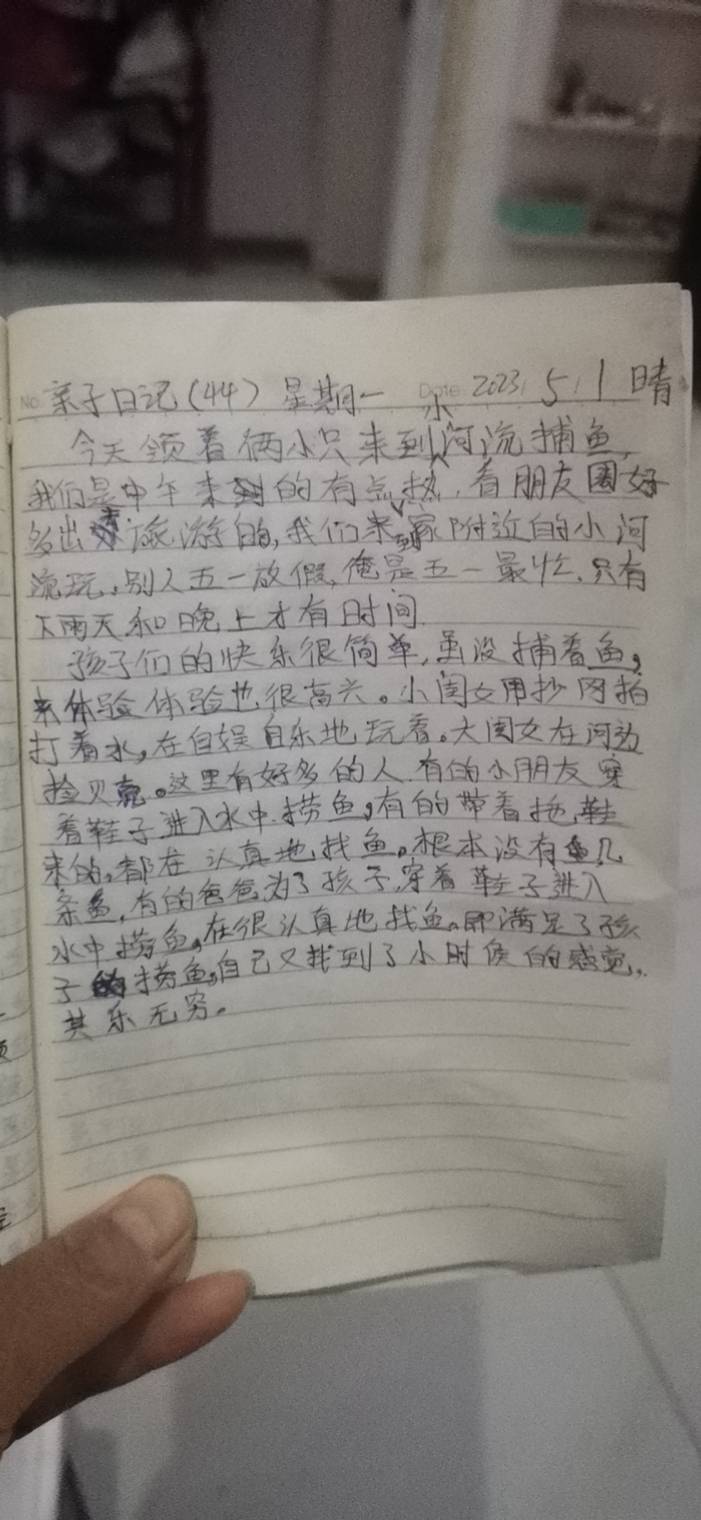 No. 亲子日记(44) 星期一 Date. 2023. 5. 1 晴
今天领着俩小只来到小河流捕鱼,
我们是中午来的有点热,看朋友圈好
多出去旅游的,我们来到家附近的小河
流玩,别人五一放假,俺是五一最忙,只有
下雨天和晚上才有时间.
孩子们的快乐很简单,虽没捕着鱼,
来体验体验也很高兴。小闺女用抄网拍
打着水,在自娱自乐地玩着。大闺女在河边
捡贝壳。这里有好多的人,有的小朋友穿
着鞋子进入水中捞鱼,有的带着拖鞋
来的,都在认真地找鱼。根本没有几
条鱼,有的爸爸为了孩子,穿着鞋子进入
水中捞鱼,在很认真地找鱼。即满足了孩
子捞鱼,自己又找到了小时候的感觉,
其乐无穷。